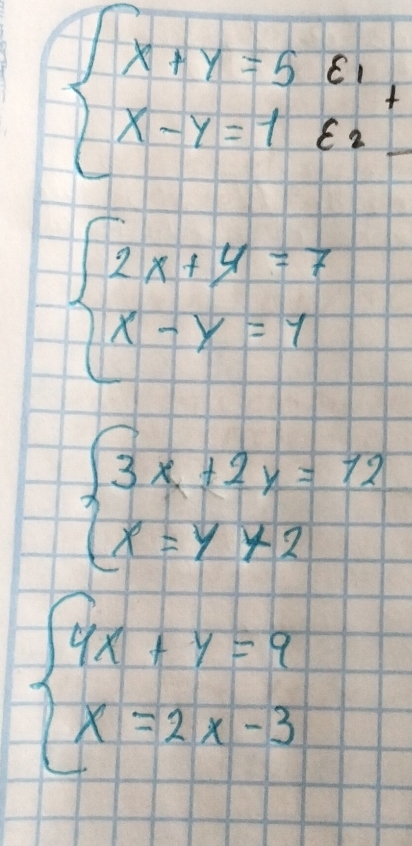 x + y = 5 ε1
+
x - y = 1 ε2
2x + y = 7
x - y = 1
3x + 2y = 12
x = y + 2
4x + y = 9
x = 2x - 3